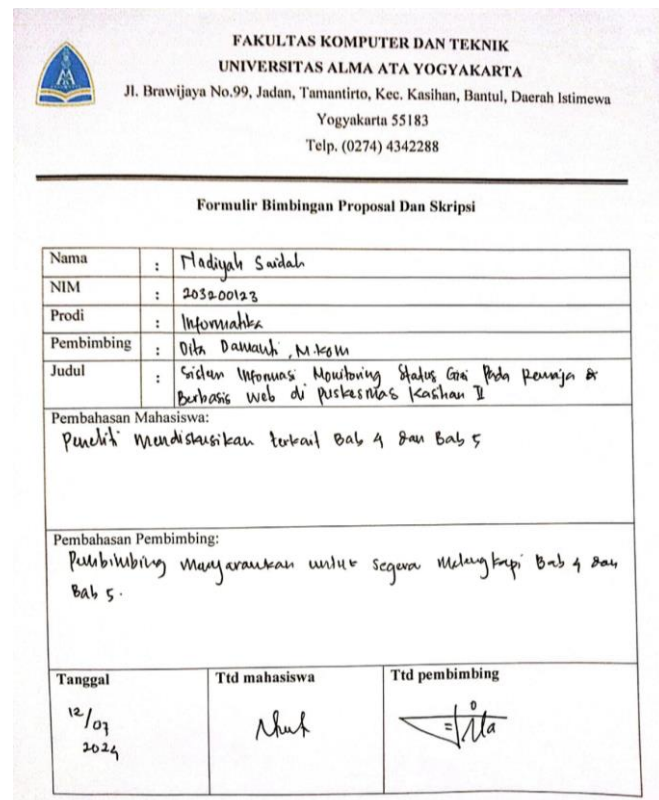 FAKULTAS KOMPUTER DAN TEKNIK
UNIVERSITAS ALMA ATA YOGYAKARTA
Jl. Brawijaya No.99, Jadan, Tamantirto, Kec. Kasihan, Bantul, Daerah Istimewa
Yogyakarta 55183
Telp. (0274) 4342288
Formulir Bimbingan Proposal Dan Skripsi
Nama : Hadiyah Saidah
NIM : 203200123
Prodi : Informatika
Pembimbing : Dita Danianti, M.Kom
Judul : Sistem Informasi Monitoring Status Gizi Pada Remaja
Berbasis Web di Puskesmas Kasihan II
Pembahasan Mahasiswa:
Peneliti Mendiskusikan terkait Bab 4 dan Bab 5
Pembahasan Pembimbing:
Pembimbing Menyarankan untuk segera Melengkapi Bab 4 dan
Bab 5.
Tanggal Ttd mahasiswa Ttd pembimbing
12/07
2024